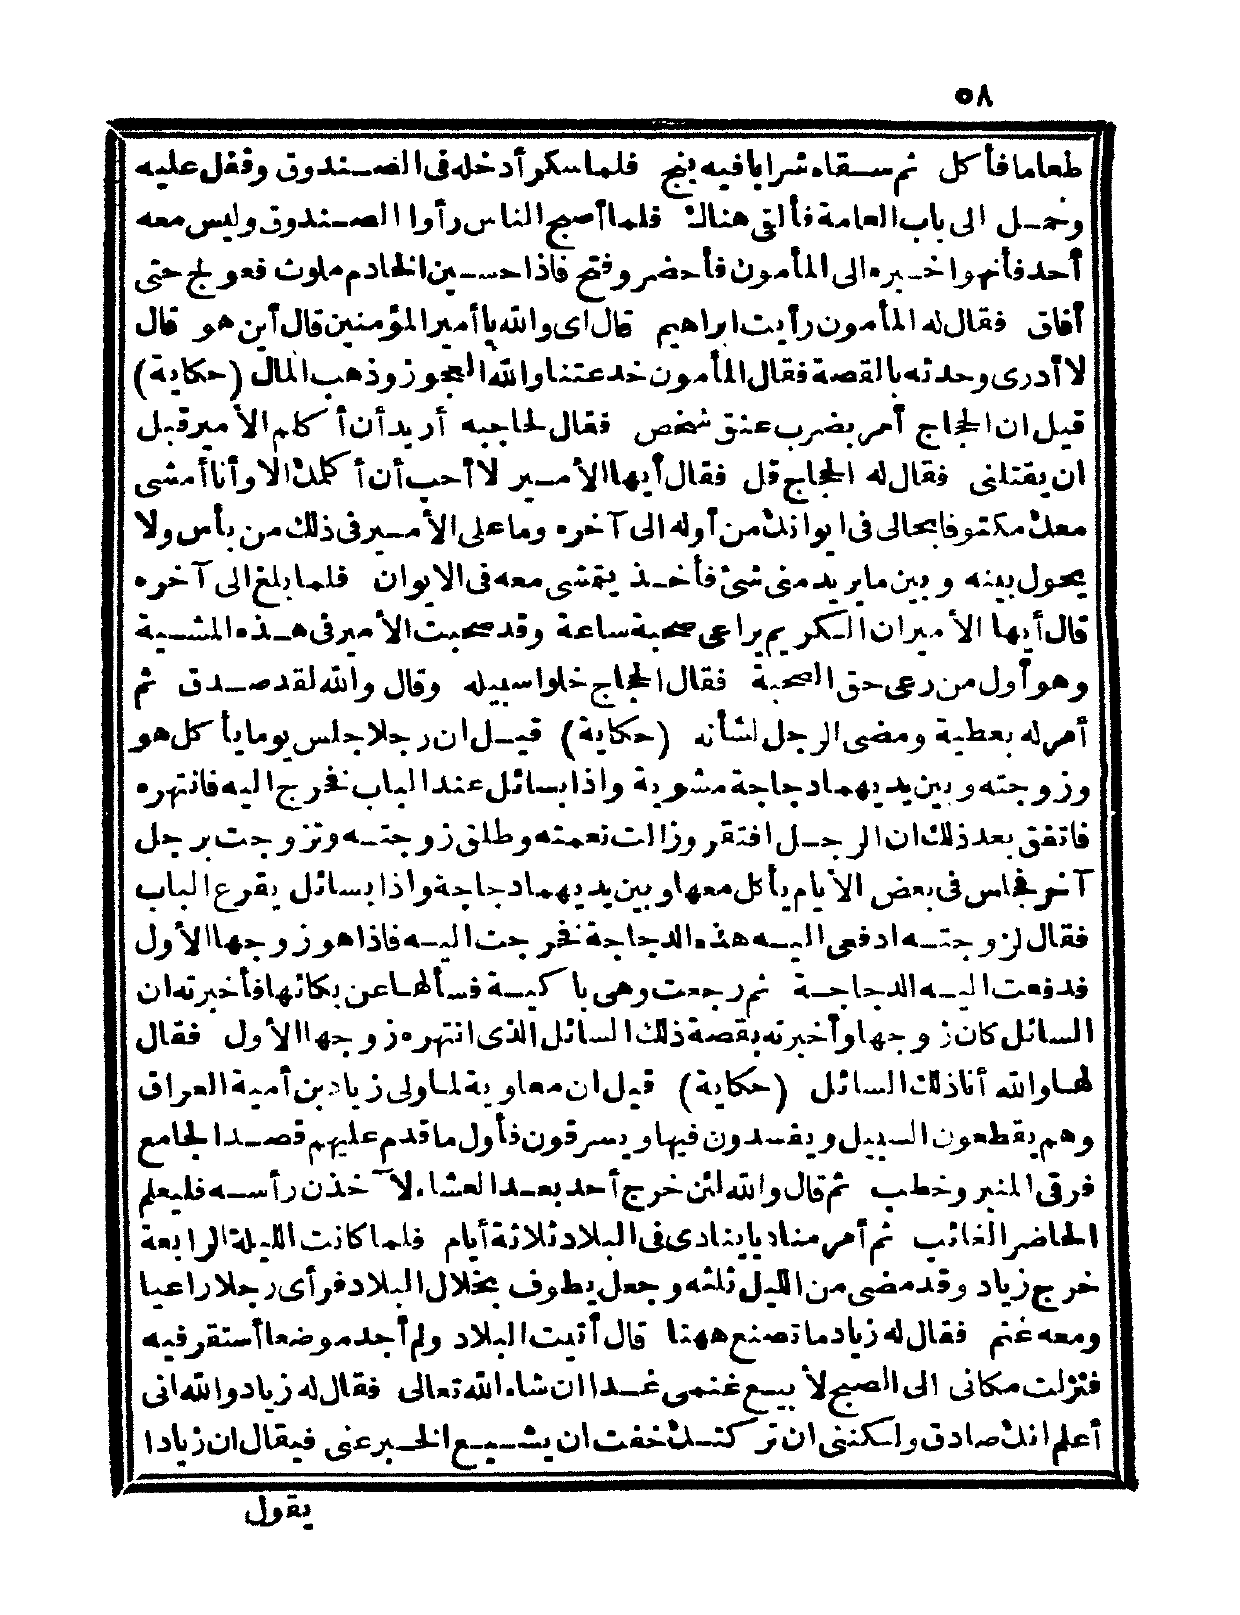 ٥٨
طعاما فأكل ثم سقاه شرابا فيه بنج فلما سكر أدخله فى الصندوق وقفل عليه
وحمل الى باب العامة فألقى هناك فلما أصبح الناس رأوا الصندوق وليس معه
أحد فأنهوا خبره الى المأمون فأحضر وفتح فاذا حسين الخادم ملوث فعولج حتى
أفاق فقال له المأمون رأيت ابراهيم قال اى والله يا أمير المؤمنين قال أين هو قال
لا أدرى وحدثه بالقصة فقال المأمون خدعتنا والله العجوز وذهب المال (حكاية)
قيل ان الحجاج أمر بضرب عنق شخص فقال لحاجبه أريد أن أكلم الأمير قبل
ان يقتلنى فقال له الحجاج قل فقال أيها الأمير لا أحب أن أكلمك الا وأنا أمشى
معك مكتوفا بحالى فى ايوانك من أوله الى آخره وما على الأمير فى ذلك من بأس ولا
يحول بينه وبين ما يريد منى شئ فأخذ يتمشى معه فى الايوان فلما بلغ الى آخره
قال أيها الأمير ان الكريم يراعى صحبة ساعة وقد صحبت الأمير فى هذه المشية
وهو أول من رعى حق الصحبة فقال الحجاج خلوا سبيله وقال والله لقد صدق ثم
أمر له بعطية ومضى الرجل لشأنه (حكاية) قيل ان رجلا جلس يوما يأكل هو
وزوجته وبين يديهما دجاجة مشوية واذا بسائل عند الباب فخرج اليه فانتهره
فاتفق بعد ذلك ان الرجل افتقر وزالت نعمته وطلق زوجته وتزوجت برجل
آخر فجلس فى بعض الأيام يأكل معها وبين يديهما دجاجة واذا بسائل يقرع الباب
فقال لزوجته ادفعى اليه هذه الدجاجة فخرجت اليه فاذا هو زوجها الأول
فدفعت اليه الدجاجة ثم رجعت وهى باكية فسألها عن بكائها فأخبرته ان
السائل كان زوجها وأخبرته بقصة ذلك السائل الذى انتهره زوجها الأول فقال
لها والله أنا ذلك السائل (حكاية) قيل ان معاوية لما ولى زياد بن أمية العراق
وهم يقطعون السبيل ويفسدون فيها ويسرقون فأول ما قدم عليهم قصد الجامع
فرقى المنبر وخطب ثم قال والله لئن خرج أحد بعد العشاء لآخذن رأسه فليعلم
الحاضر الغائب ثم أمر مناديا ينادى فى البلاد ثلاثة أيام فلما كانت الليلة الرابعة
خرج زياد وقد مضى من الليل ثلثه وجعل يطوف بخلال البلاد فرأى رجلا راعيا
ومعه غنم فقال له زياد ما تصنع ههنا قال أتيت البلاد ولم أجد موضعا أستقر فيه
فنزلت مكانى الى الصبح لأبيع غنمى غدا ان شاء الله تعالى فقال له زياد والله انى
أعلم انك صادق ولكننى ان تركتك خفت ان يشيع الخبر عنى فيقال ان زيادا
يقول